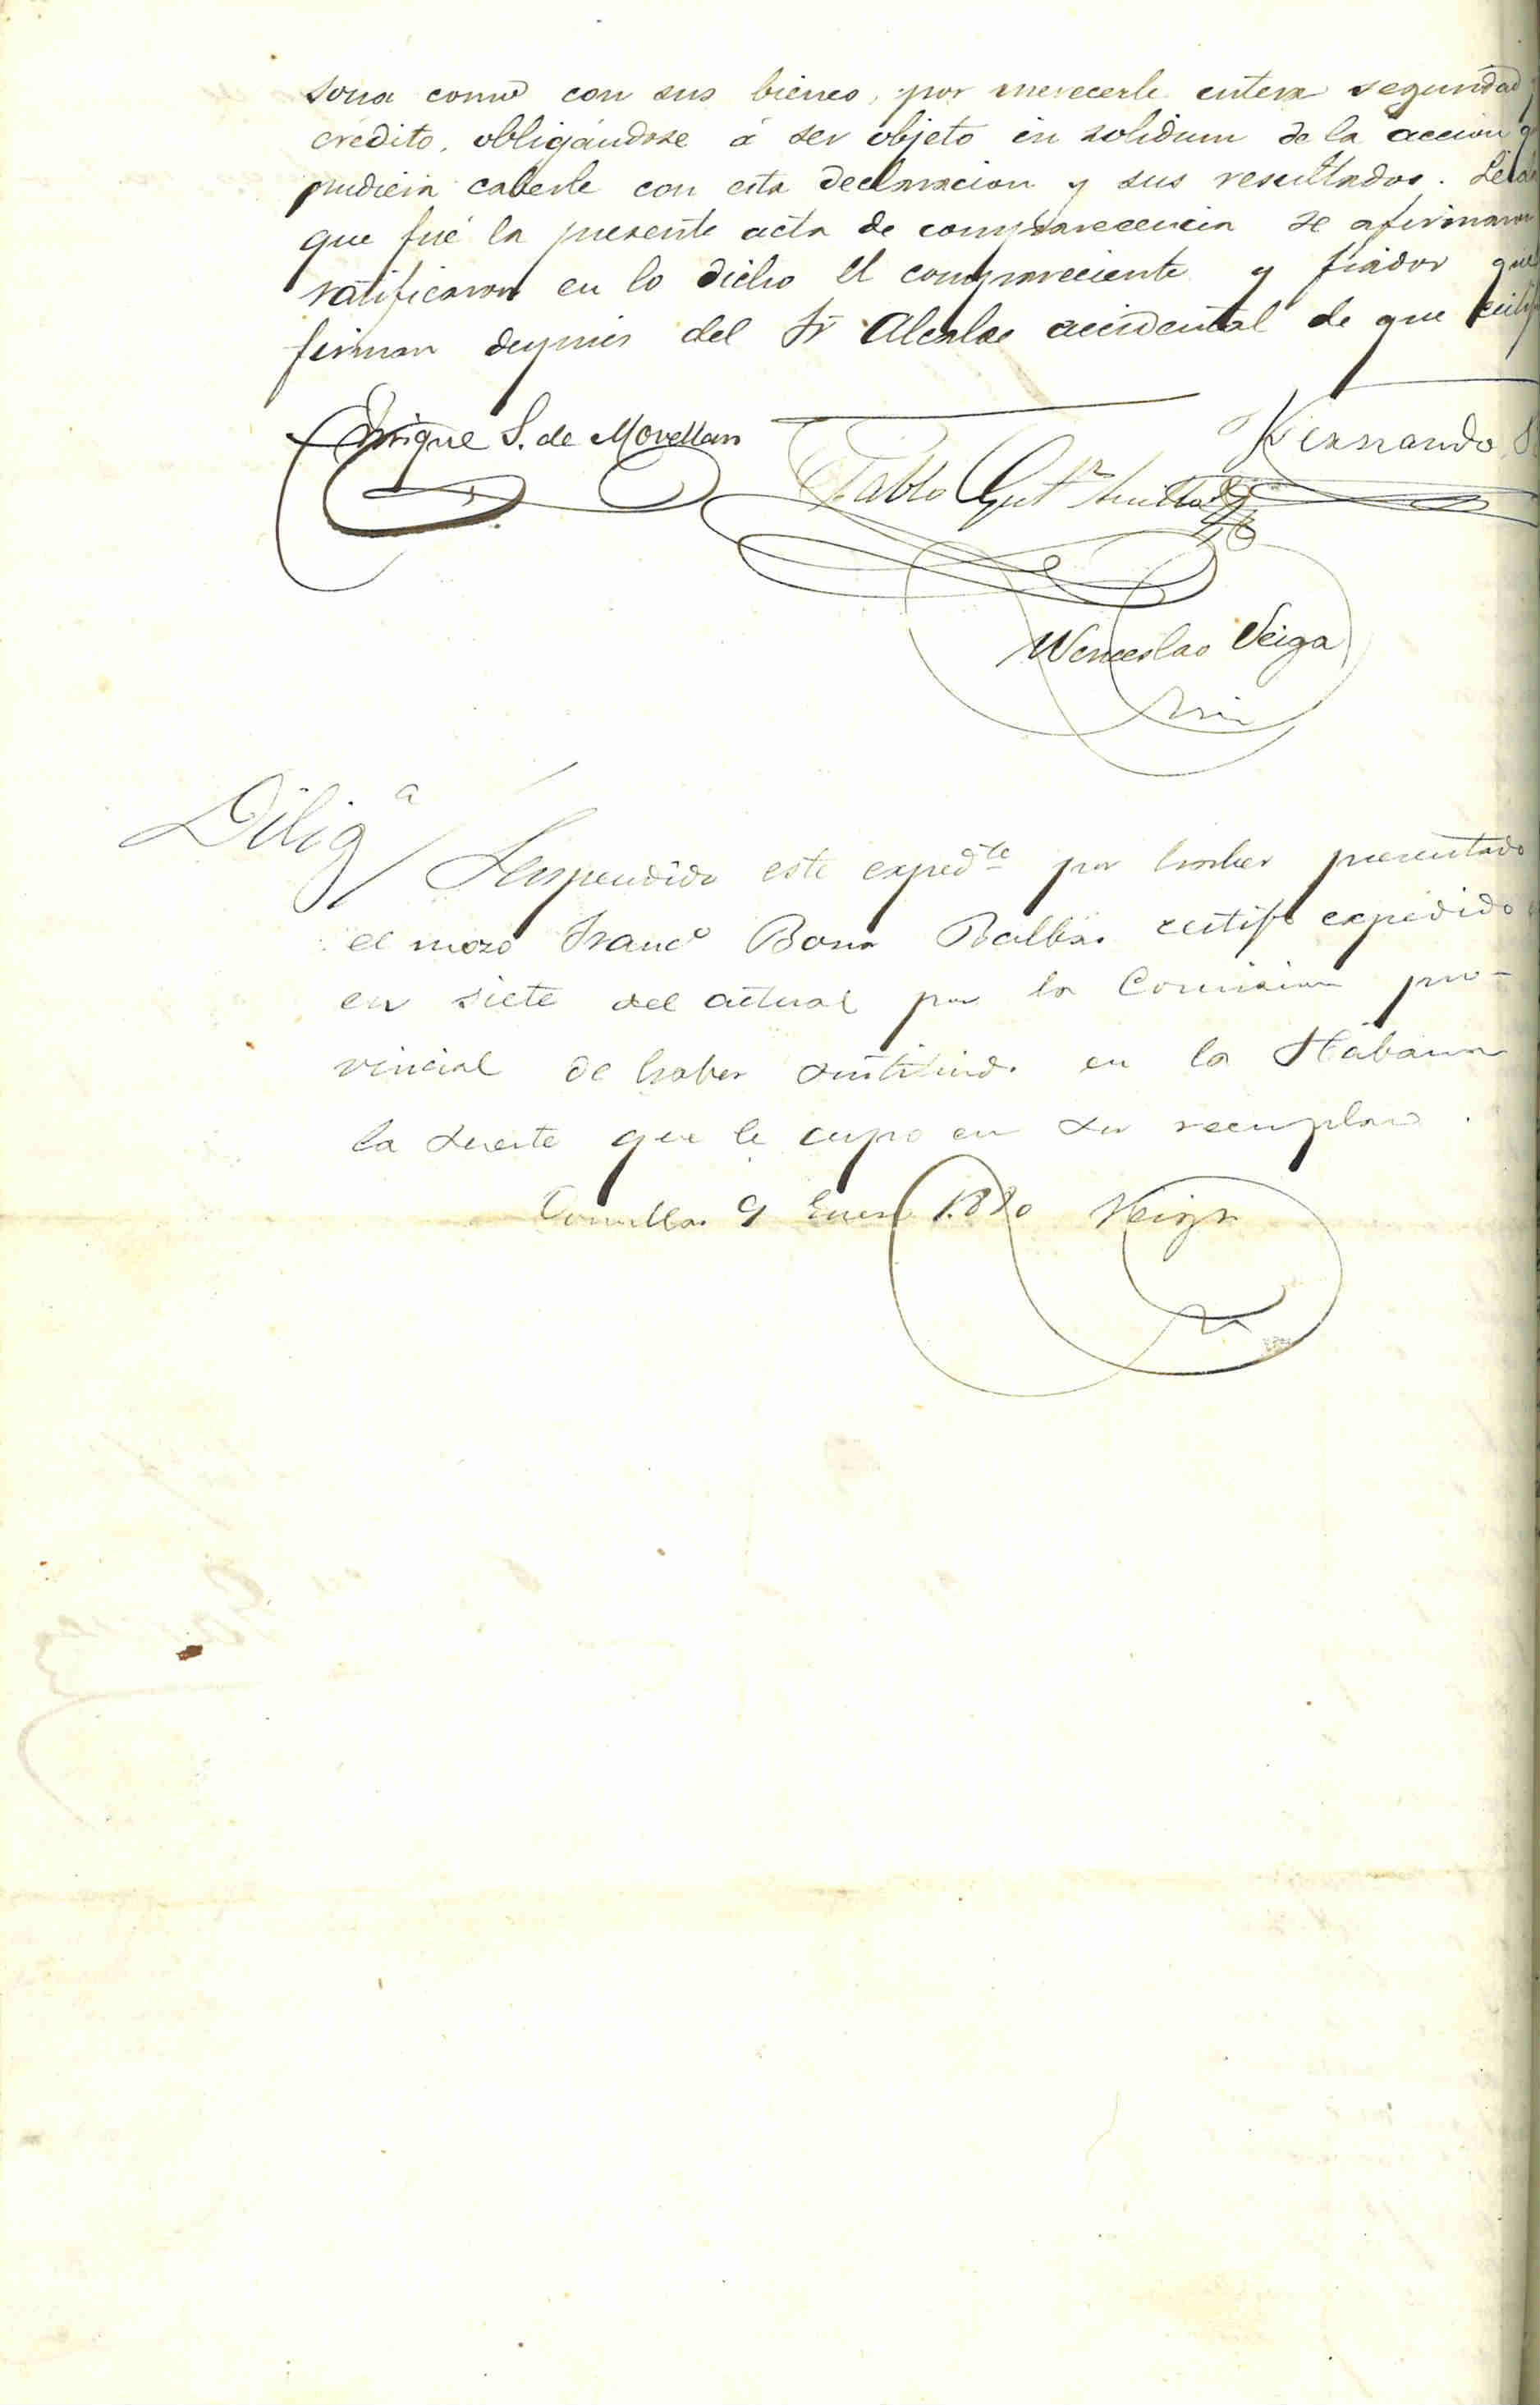 sona como con sus bienes, por merecerle entera seguridad
crédito, obligándose á ser objeto in solidum de la accion q
pudiera caberle con esta declaracion y sus resultados. Leida
que fué la presente acta de comparecencia se afirmaron
ratificaron en lo dicho el compareciente y fiador que
firman despues del Sr Alcalde accidental de que
Enrique S. de Movellan
Fernando
Pablo Gutrz
Wenceslao Veiga
Srio
Diliga
Suspendido este expedte por haber presentado
el mozo Franco Bona Balbas certifo expedido
en siete del actual por la Comision pro-
vincial de haber sustituido en la Habana
la suerte que le cupo en su reemplazo.
Comillas 9 Enero 1880 Veiga